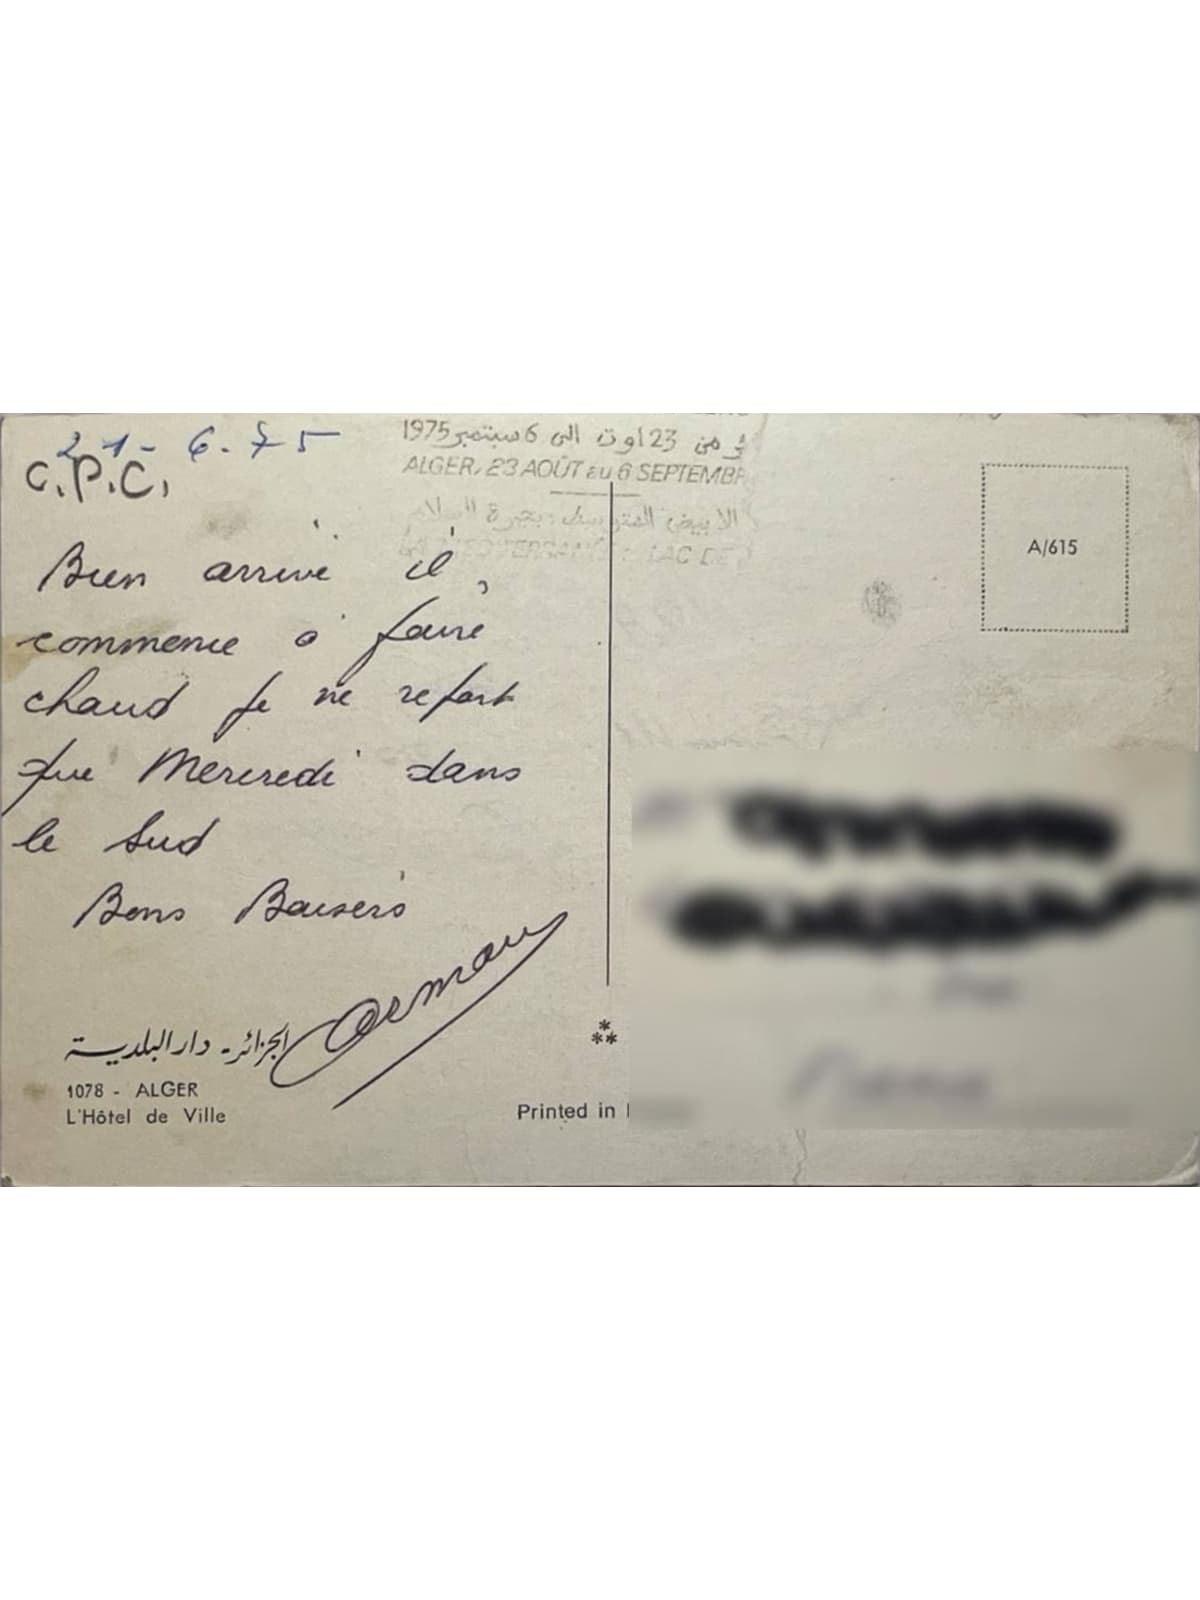 21-6-75
C.P.C.
من 23 اوت الى 6 سبتمبر 1975
ALGER, 23 AOÛT au 6 SEPTEMBR
الابيض المتوسط بحيرة السلام
LAC DE
A/615
Bien arrivé il
commence à faire
chaud Je ne repart
que Mercredi dans
le Sud
Bons Baisers
الجزائر - دار البلدية
1078 - ALGER
L'Hôtel de Ville
Printed in